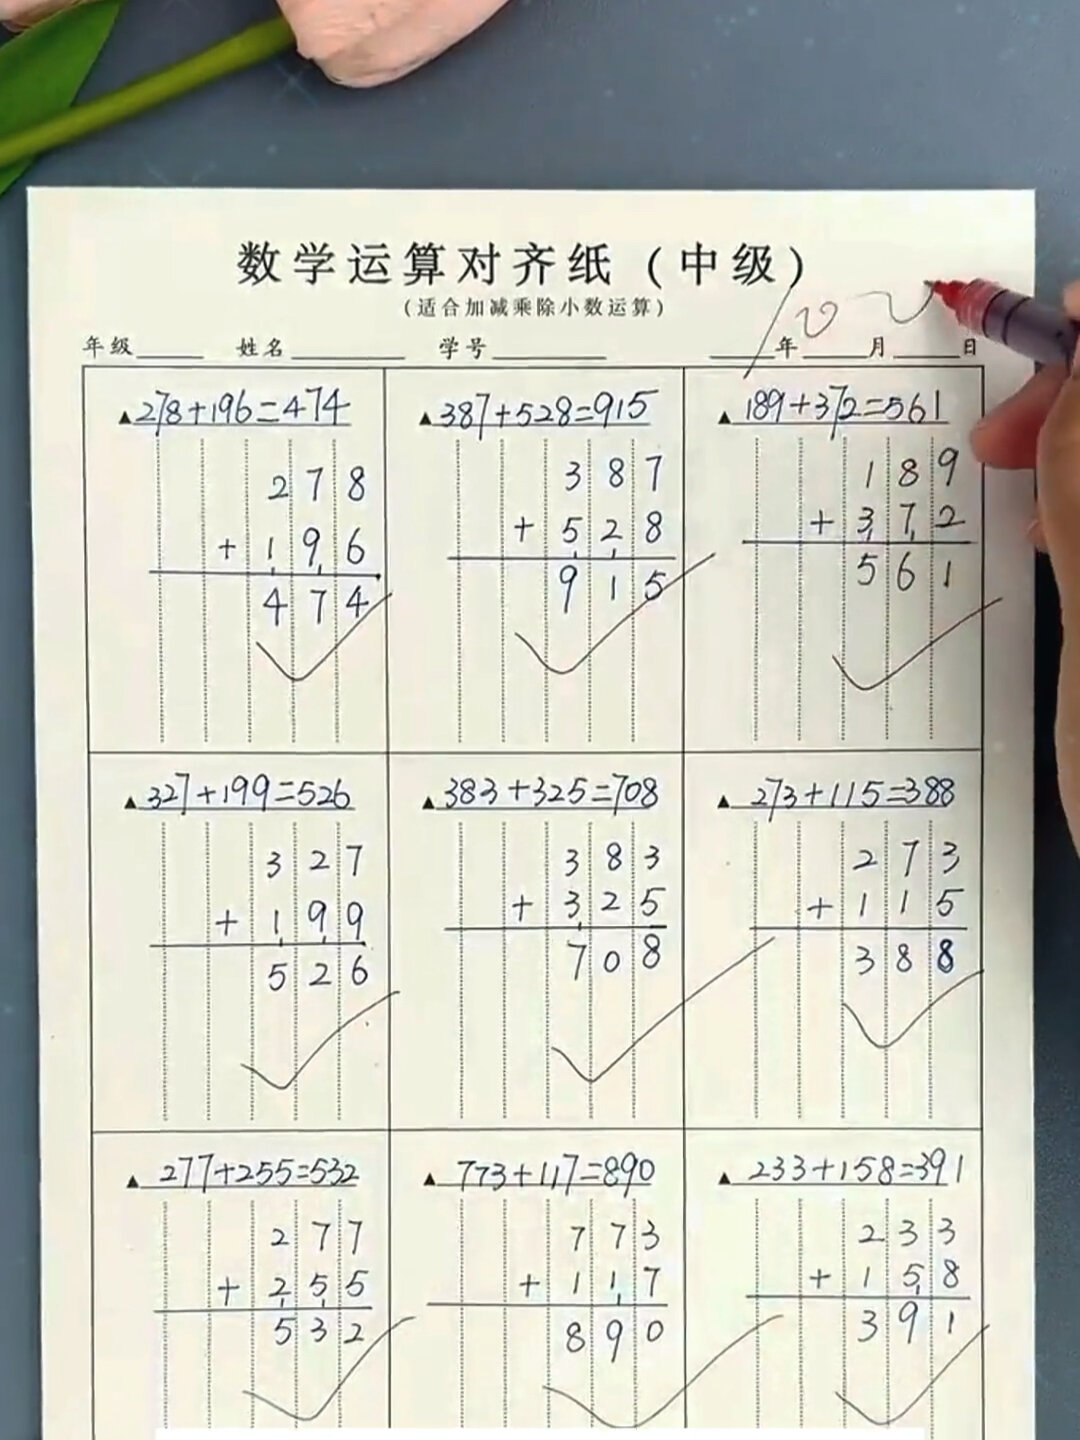 数学运算对齐纸（中级）
（适合加减乘除小数运算）
年级 姓名 学号 年 月 日
▲278+196=474
278
+196
474
▲387+528=915
387
+528
915
▲189+372=561
189
+372
561
▲327+199=526
327
+199
526
▲383+325=708
383
+325
708
▲273+115=388
273
+115
388
▲277+255=532
277
+255
532
▲773+117=890
773
+117
890
▲233+158=391
233
+158
391